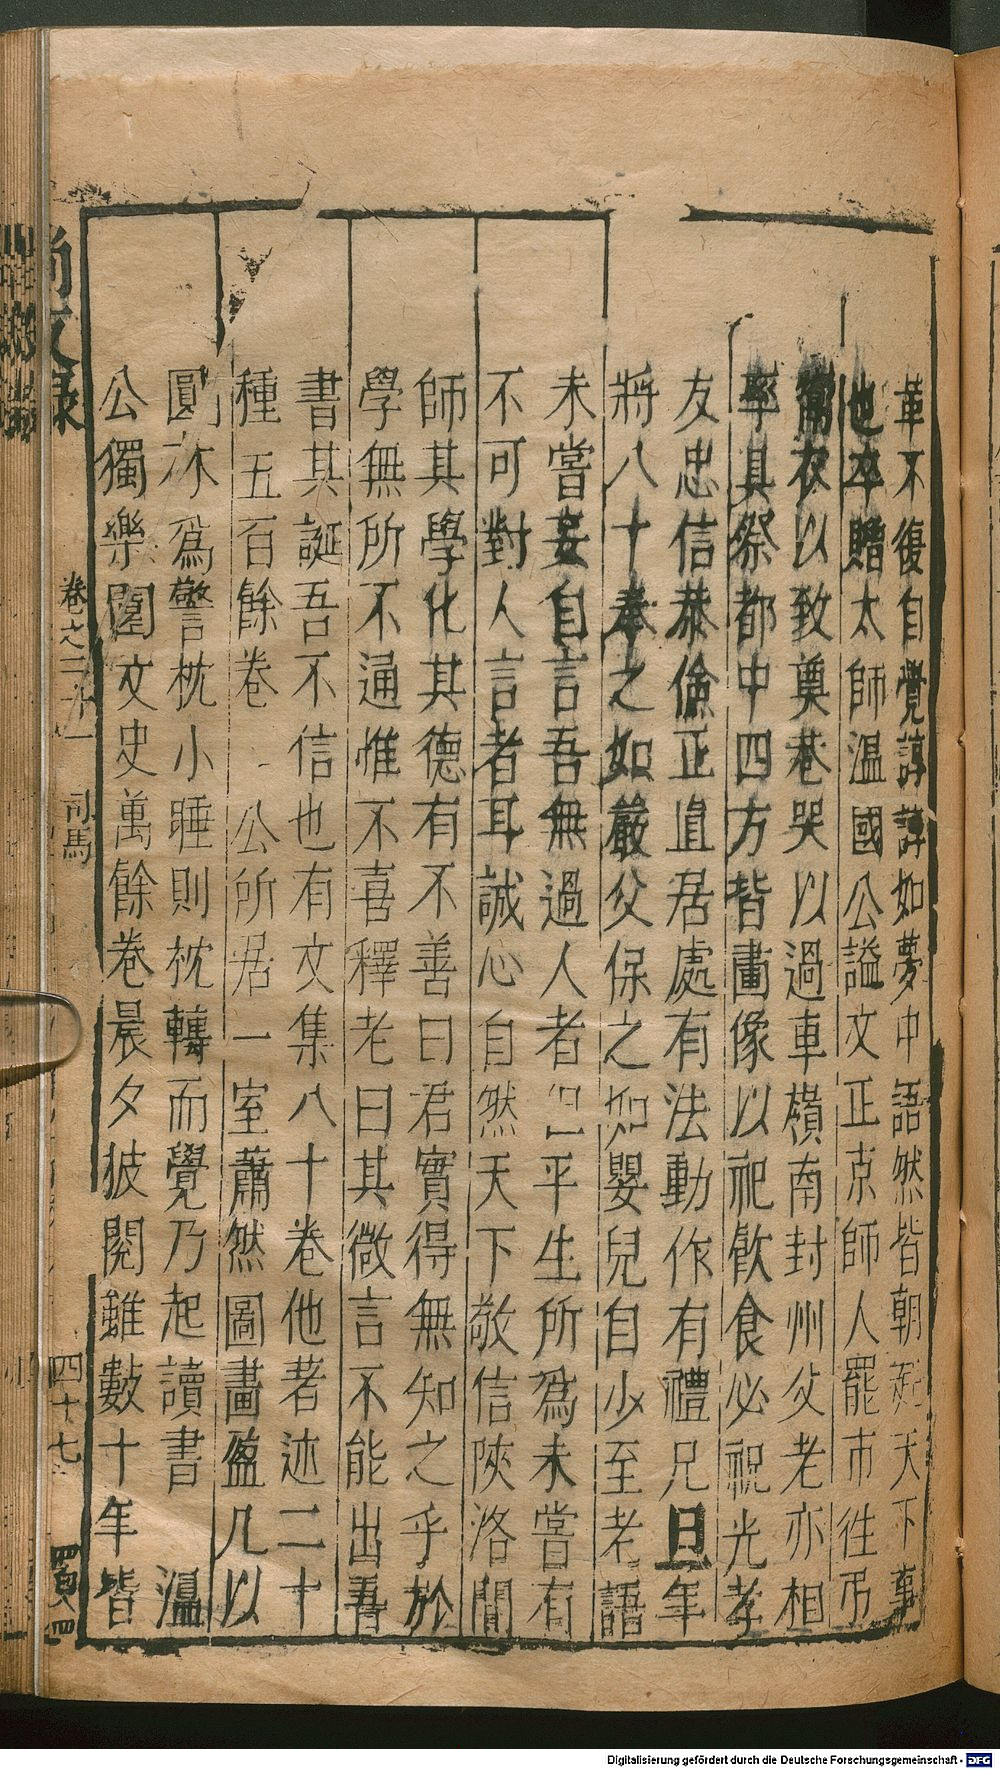 革不復自覺諄諄如夢中語然皆朝廷天下事
也卒贈太師溫國公謚文正京師人罷市往弔
鬻衣以致奠巷哭以過車嶺南封州父老亦相
率具祭都中四方皆畫像以祀飲食必祝光孝
友忠信恭儉正直居處有法動作有禮兄旦年
將八十奉之如嚴父保之如嬰兒自少至老語
未嘗妄自言吾無過人者但平生所爲未嘗有
不可對人言者耳誠心自然天下敬信陝洛間
師其學化其德有不善曰君實得無知之乎於
學無所不通惟不喜釋老曰其微言不能出吾
書其誕吾不信也有文集八十卷他者迹二十
種五百餘卷 公所居一室蕭然圖畫盈几以
圓木爲警枕小睡則枕轉而覺乃起讀書 溫
公獨樂園文史萬餘卷晨夕披閱雖數十年皆
尚友錄 卷之二十一 司馬 四十七
Digitalisierung gefördert durch die Deutsche Forschungsgemeinschaft - DFG